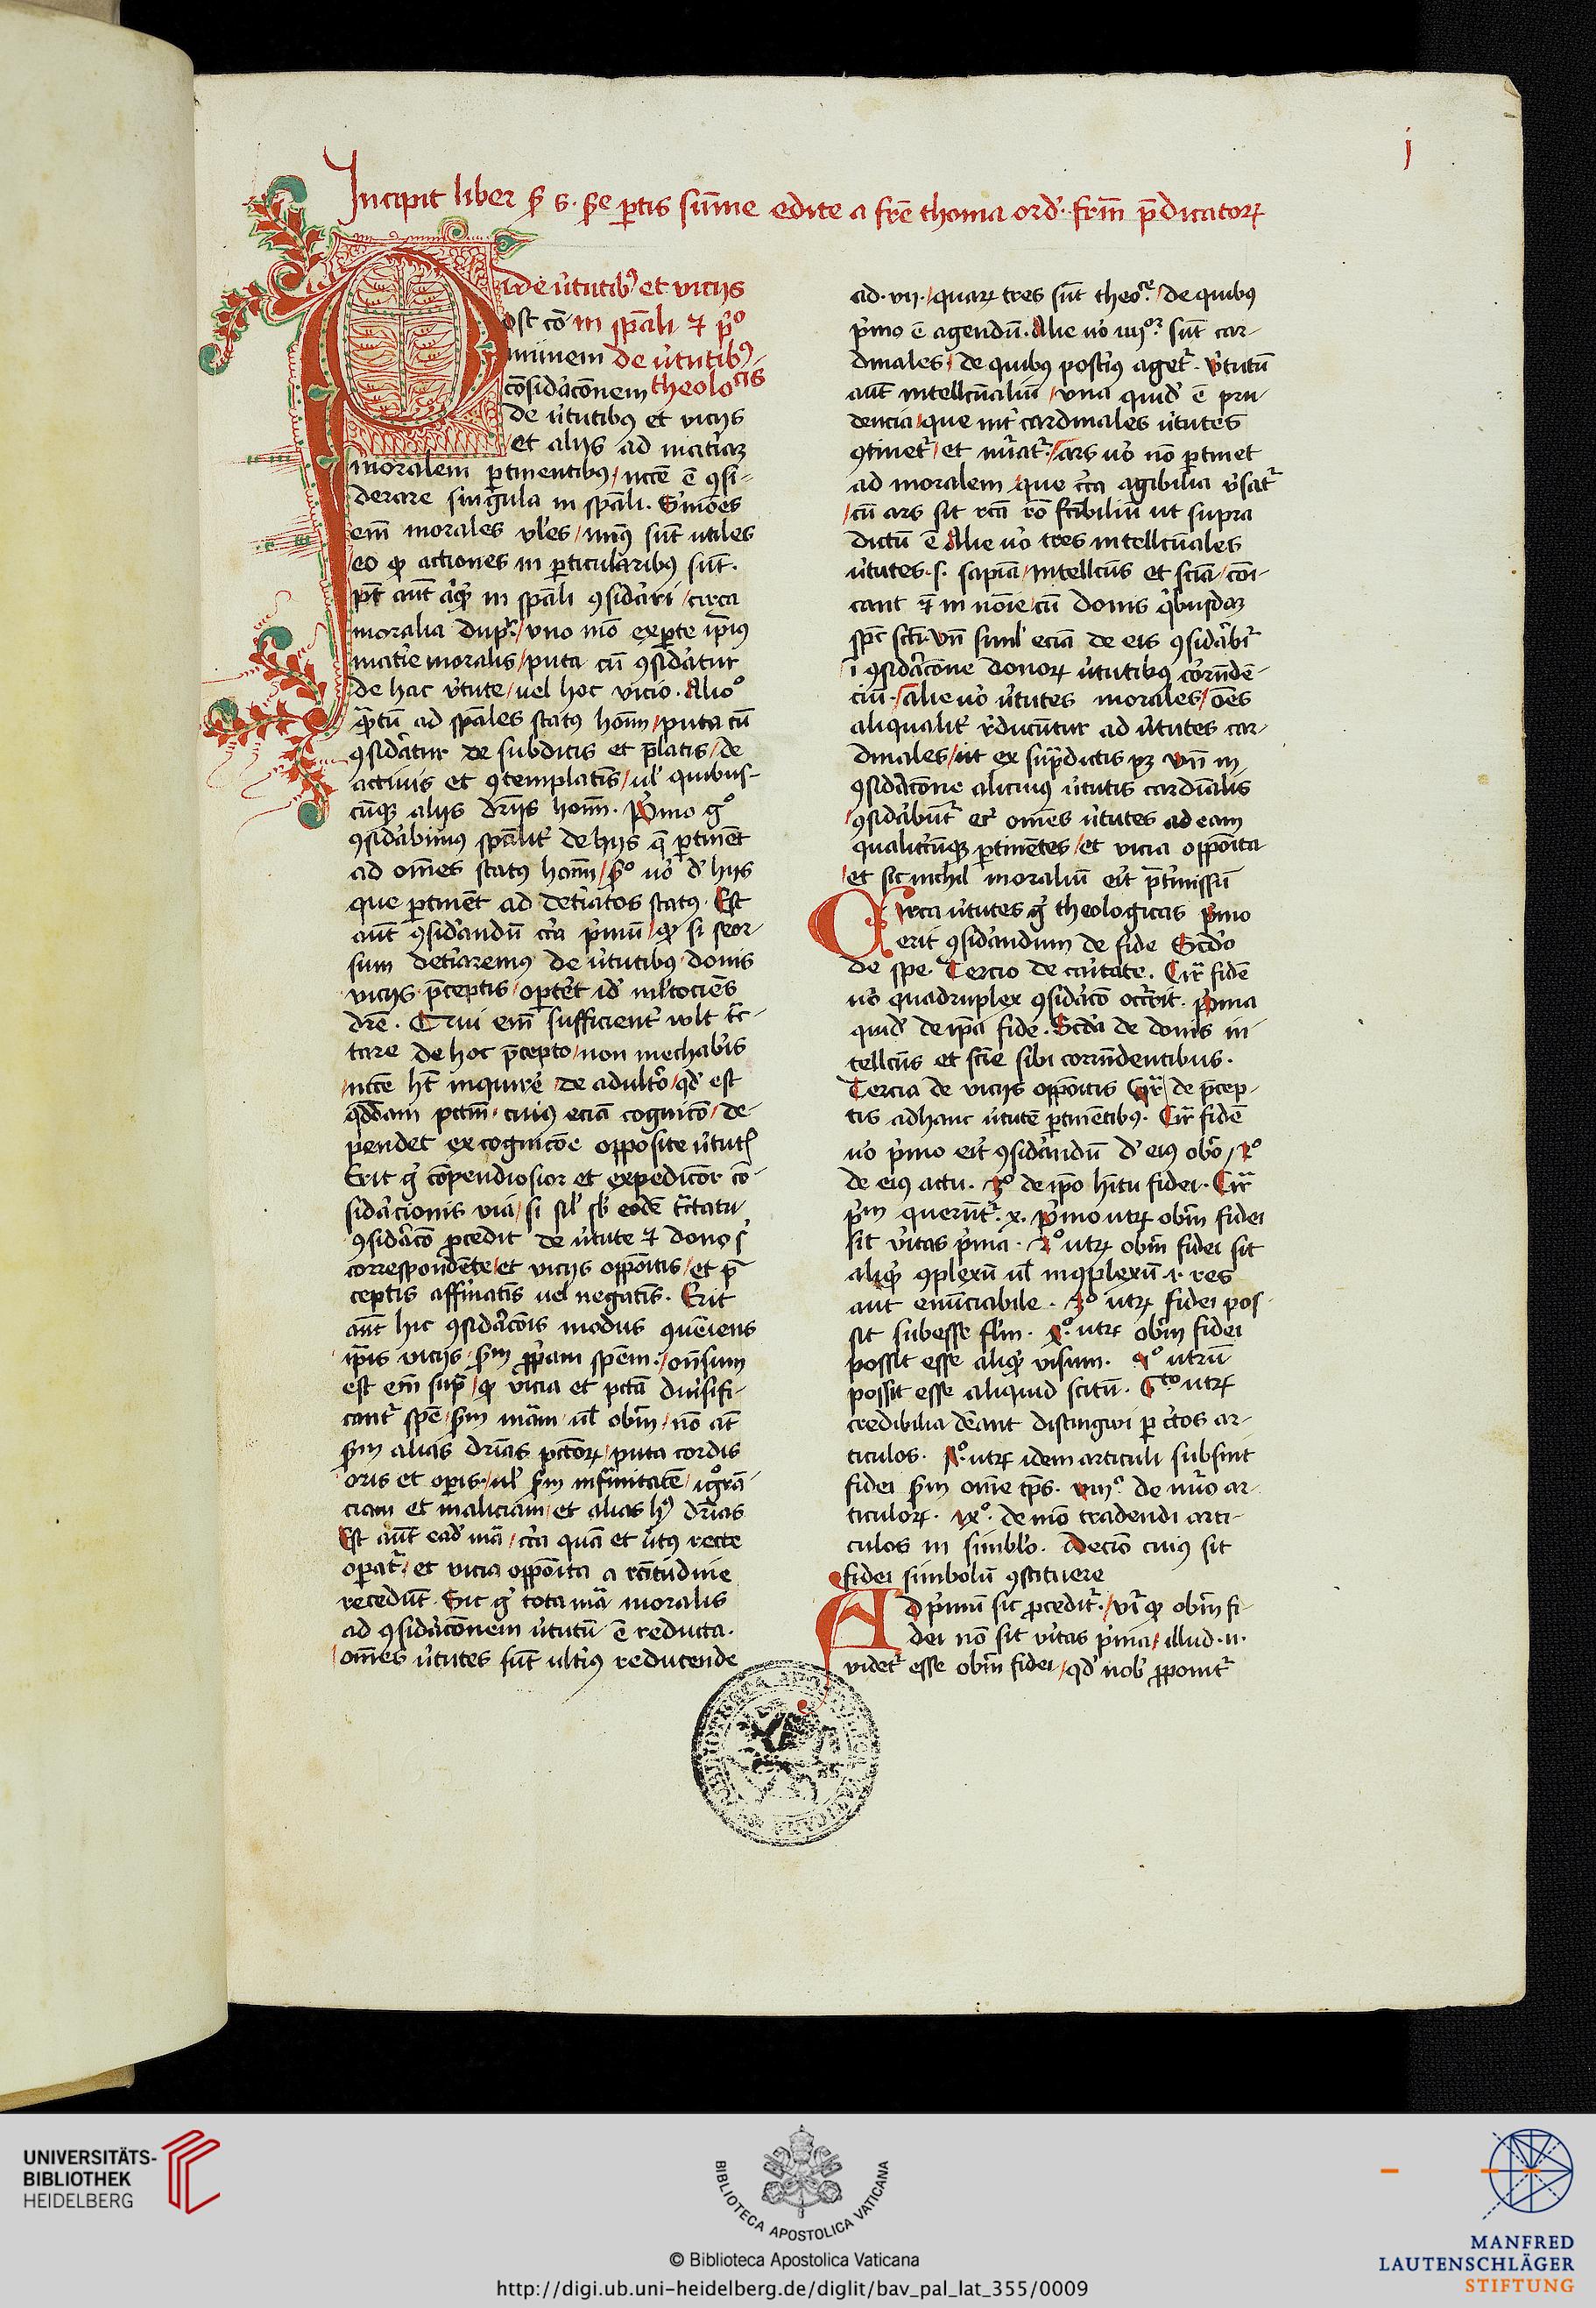 j
Incipit liber s̄ s. s̄e ꝑtis sūme edite a frē thoma ord. frm̄ p̄dicatoꝝ
ide v̓tutibꝰ et vicijs
ost cō in spāli ⁊ p̓º
munem de v̓tutibꝯ
cōsid̓acōnem theolocis
de v̓tutibꝰ et vicijs
et alijs ad mat̓iaꝫ
moralem ꝑtinentibꝰ / nccē ē ꝯsi-
derare singula in spāli. S̓mōes
em̄ morales vl̓es / minꝰ sūt utiles
eo ꝙ actiones in ꝑticularibꝰ sūt.
pt̄ aūt in spāli ꝯsid̓ari / circa
moralia dupr̓. / uno mō ex ꝑte ip̄iꝰ
mat̓ie moralis / puta cū ꝯsid̓atur
de hac v̓tute / uel hoc vicio. Alioº
ad spāles statꝰ hoīm / puta cū
ꝯsid̓atur de subditis et p̄latis / de
actiuis et ꝯtemplatīs / ul̓ quibus-
cūqꝫ alijs dr̄ijs hoīm. P̓mo gº
ꝯsid̓abimꝰ spālit̓ de hijs q̄ ꝑtinēt
ad om̄es statꝰ hoīm / s̄º u̓o d̓ hijs
que ꝑtinēt ad det̓iatos statꝰ. Est
aūt ꝯsid̓andū cc̄a p̓mū / ꝙ si seor-
sum det̓iaremꝰ de v̓tutibꝰ donis
vicijs p̄ceptis / opt̓et id̓ ml̓tociēs
dr̄e. Qui em̄ sufficient̓ wlt tc̄-
tare de hoc p̄cepto / non mechab̓is
nccē ht̄ inquire̓ de adult̓o / qd̓ est
qd̄dam pctm̄ / cuiꝰ eciā cognicō / de-
pendet ex cognicōe opposite v̓tutꝭ
Erit g̓ cōpendiosior et expedicōr cō-
sid̓acionis via / si sil̓ sb̓ eodē tc̄tatu
ꝯsid̓acō ꝓcedit de v̓tute ⁊ dono s̓
correspondēte / et vicijs oppōitis / et p̄
ceptis affirmatīs uel negatīs. Erit
aūt hic ꝯsid̓acōis modus quēiens
ip̄is vicijs / sm̄ ꝓpͥam spēm. / on̄sum
est em̄ sup̄ / ꝙ vicia et pctā diu̓sifi-
cant̓ spē / sm̄ mām / ul̓ obm̄ / nō aūt
sm̄ alias dr̄ias pctōꝝ / puta cordis
oris et oꝑis / ul̓ sm̄ infirmitatē / igͦrā-
ciam et maliciam / et alias hꝰ dr̄ias
Est aūt ead̓ mā / cc̄a quā et v̓tꝰ recte
operat̓ / et vicia oppōita a rc̄itudine
recedūt. Sic g̓ tota mā moralis
ad ꝯsid̓acōnem v̓tutū ē reducta.
om̄es v̓tutes sūt ult̓iꝰ reducende
ad. vii. / quaꝝ tres sūt theoͤ. / de quibꝰ
p̓mo ē agendū. Alie u̓o iiijᵒꝛ sūt car-
dinales / de quibꝰ post̓iꝰ aget̓. V̓tutū
aūt intellcūaliū / una quid̓ ē pru-
dencia / que int̓ cardinales v̓tutes
ꝯtinet̓ / et nūat̓. / ars u̓o nō ꝑtinet
ad moralem / que cc̄a agibilia v̓sat̓
/ cū ars sit rc̄a rō fcībiliū ut supra
dictū ē Alie u̓o tres intellcūales
v̓tutes. s. sapīa / intellcūs et scīa / cōi-
cant ⁊ in nōie / cū donis q̓busdaꝫ
spc̄ scī. Vn̄ simil̓ eciā de eis ꝯsid̓abit̓
ī ꝯsid̓acōne donoꝝ v̓tutibꝰ cōrn̄dē-
ciū. / alie u̓o v̓tutes morales / ōes
aliqualit̓ r̓ducūtur ad v̓tutes car-
dinales / ut ex sup̄dictis pꝫ Vn̄ in
ꝯsid̓acōne alicuiꝰ v̓tutis cardinālis
ꝯsid̓abūt̓ et̓ omēs v̓tutes ad eam
qualit̓cūqꝫ ꝑtinētes / et vicia oppōita
et sic nichil moraliū er̓it p̄t̓missū
Circa v̓tutes g̓ theologicas p̓mo
erit ꝯsid̓andum de fide Scd̓o
de spe. Tercio de caritate. Cir̄ fidē
u̓o quadruplex ꝯsid̓acō occ̓rit. P̓ma
quid̓ de ip̄a fide. Scd̓a de donis in-
tellcūs et scīe sibi corrn̄dentibus.
Tercia de vicijs oppōitis Qr̄ de p̄cep-
tis ad hanc v̓tutē ꝑtinētibꝰ. Cir̄ fidē
u̓o p̓mo er̓it ꝯsid̓andū d̓ eiꝰ obīo / 2º
de eiꝰ actu. 3º de ip̄o hītu fidei. Cir̄
p̓m querūt̓. x. P̓mo utꝝ obm̄ fidei
sit v̓itas p̓ma. 2º utꝝ obm̄ fidei sit
aliqͥd ꝯplexū ul̓ inꝯplexū. i. res
aut enūciabile. 3º utꝝ fidei pos-
sit subesse fl̓m. 4º. utꝝ obm̄ fidei
possit esse aliqͥd visum. 5º utrū
possit esse aliquid scitū. 6ᵗᵒ utꝝ
credibilia dēant distingwi ꝑ c̓tos ar-
ticulos. 7º. utꝝ idem articuli subsint
fidei sm̄ om̄e tp̄s. viijº. de nūo ar-
ticuloꝝ. ixº. de mō tradendi arti-
culos in simbl̓o. Decīo cuiꝰ sit
fidei simbolū ꝯstituere
Ad p̓mū sic ꝓcedit̓. / Vr̄ ꝙ obm̄ fi-
dei nō sit v̓itas p̓ma / illud. n.
videt̓ esse obm̄ fidei / qd̓ nob̓ ꝓponit̓
UNIVERSITÄTS-
BIBLIOTHEK
HEIDELBERG
BIBLIOTECA APOSTOLICA VATICANA
© Biblioteca Apostolica Vaticana
http://digi.ub.uni-heidelberg.de/diglit/bav_pal_lat_355/0009
MANFRED
LAUTENSCHLÄGER
STIFTUNG